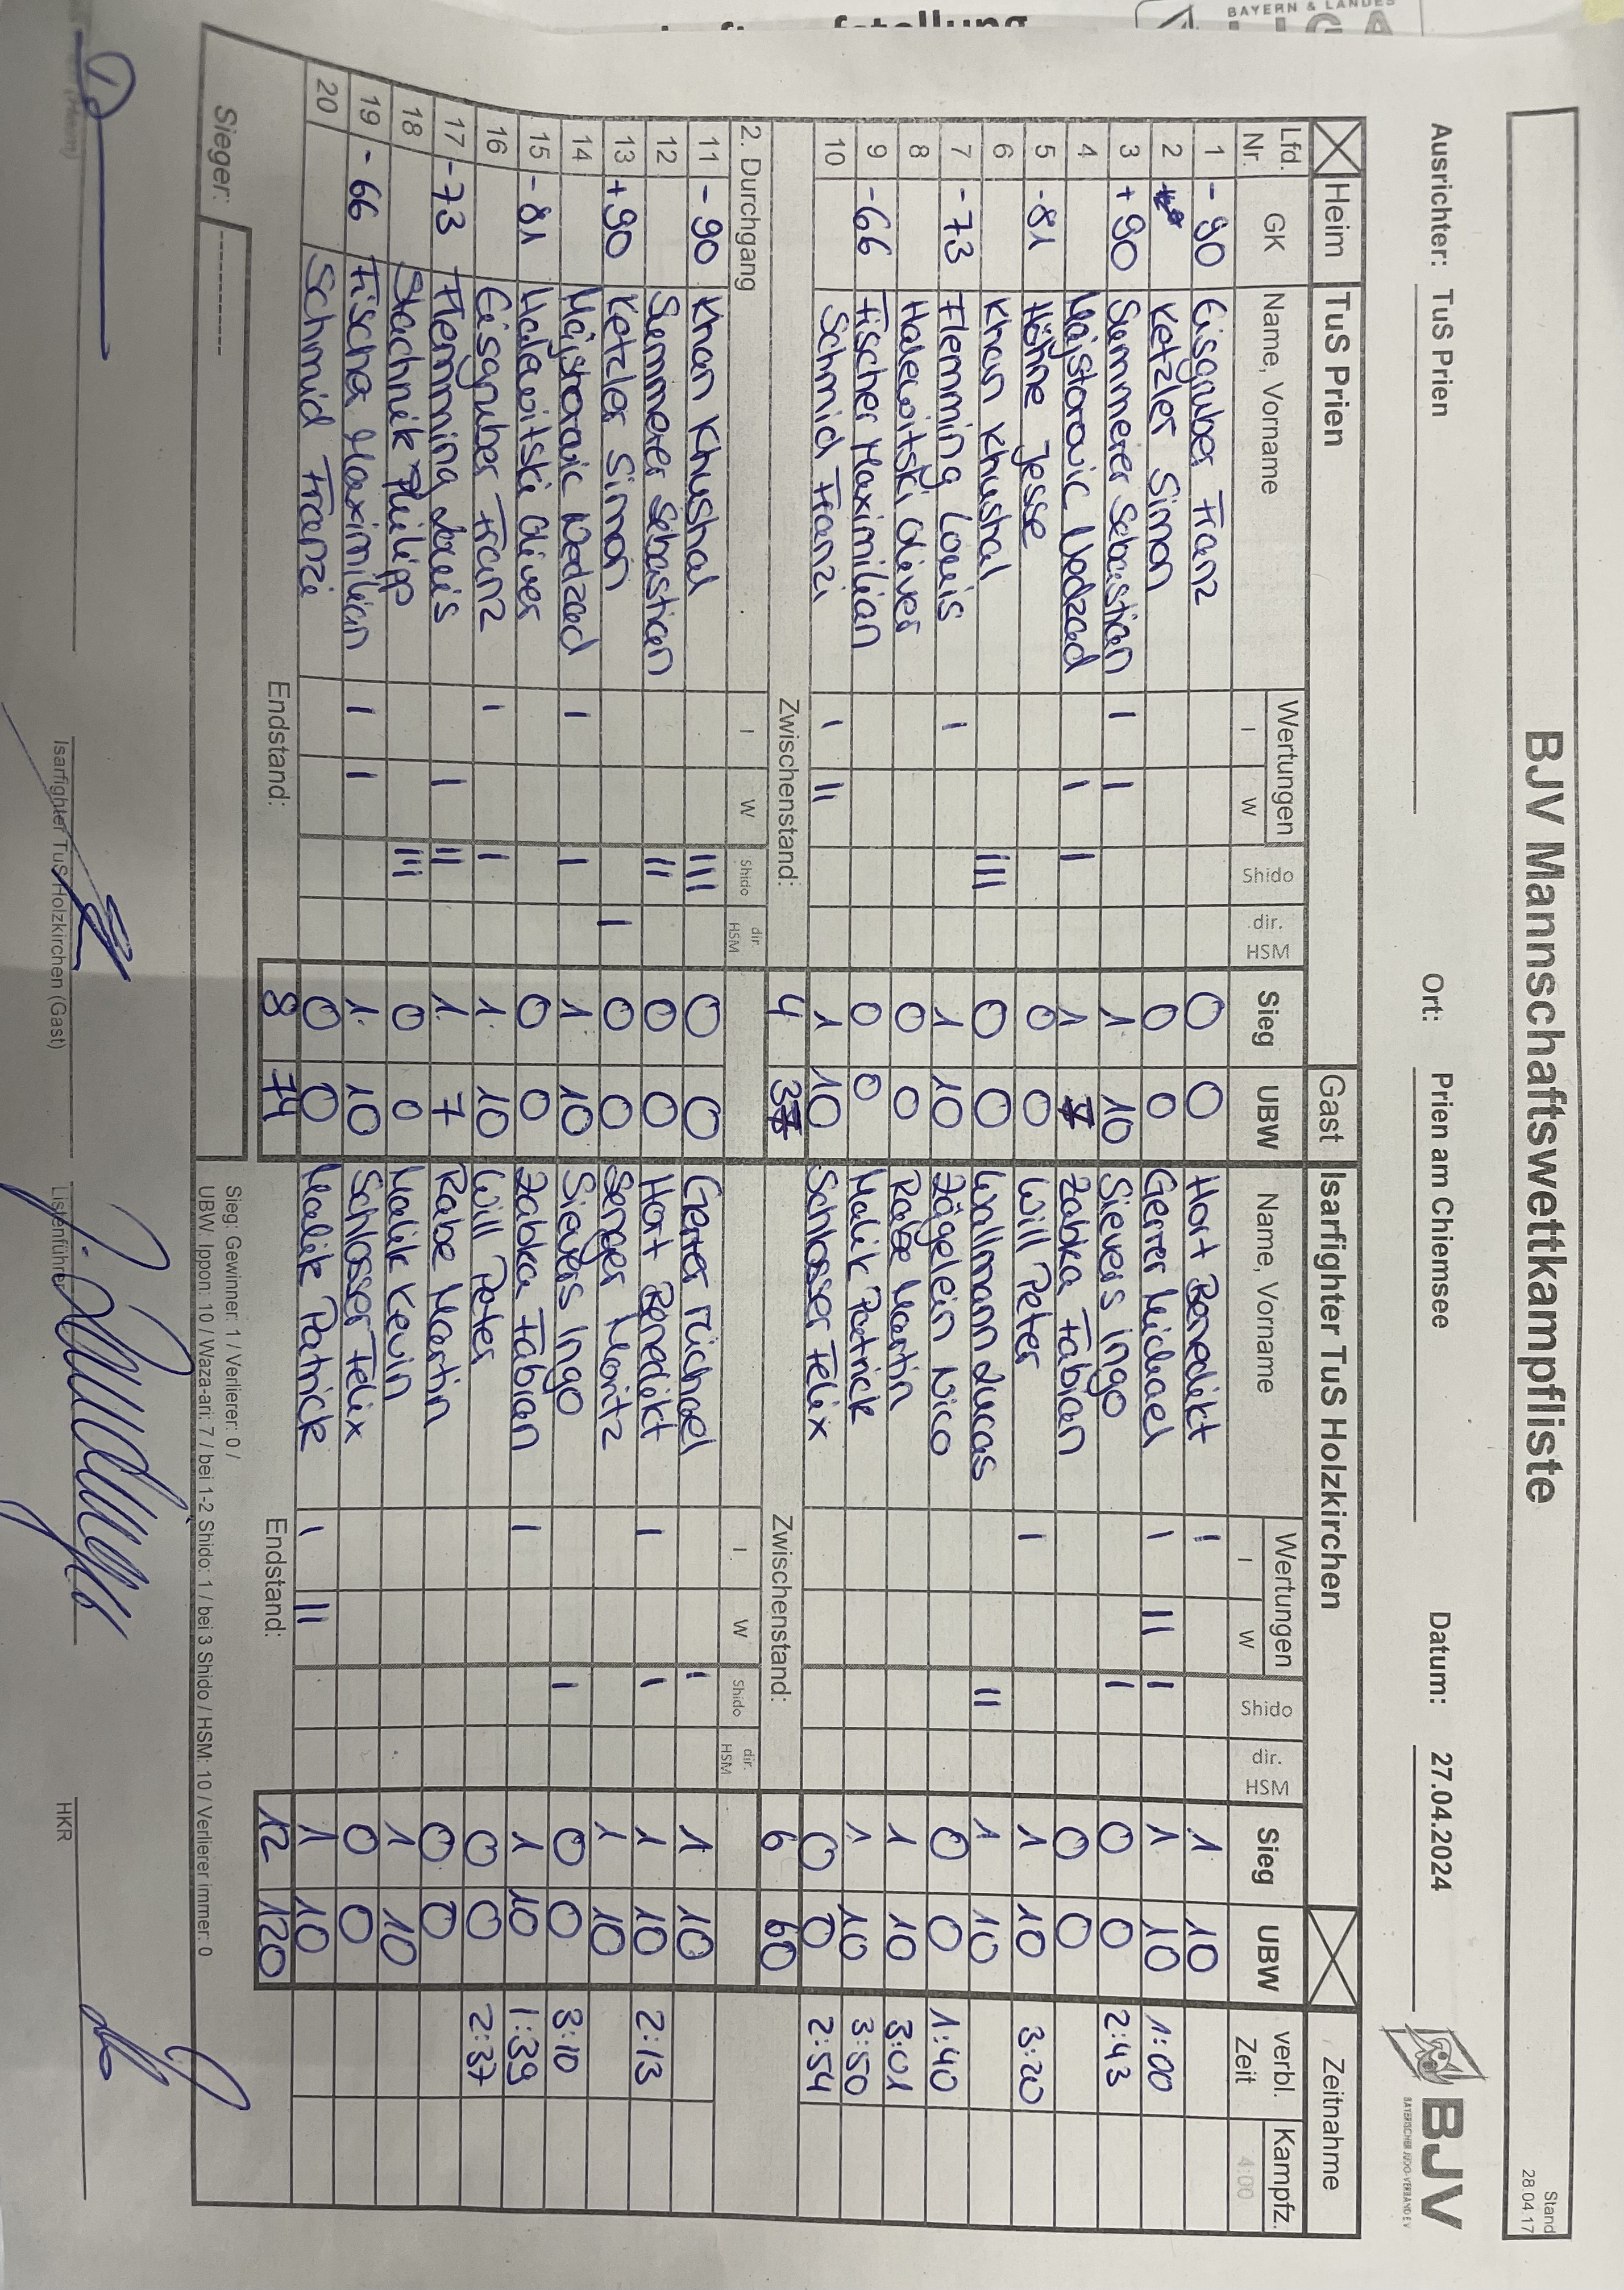 BAYERN & LANDES
LIGA
BJV Mannschaftswettkampfliste
Stand
28.04.17
Ausrichter: TuS Prien Ort: Prien am Chiemsee Datum: 27.04.2024
BJV
BAYERISCHER JUDO-VERBAND E.V.
Heim TuS Prien Gast Isarfighter TuS Holzkirchen Zeitnahme
Lfd. Nr. GK Name, Vorname Wertungen I W Shido dir. HSM Sieg UBW Name, Vorname Wertungen I W Shido dir. HSM Sieg UBW verbl. Zeit Kampfz. 4:00
1 -90 Eisgruber Franz 0 0 Hort Benedikt I 1 10
2 Ketzler Simon 0 0 Gerrer Michael I II I 1 10 1:00
3 +90 Summerer Sebastian I I 1 10 Sievers Ingo I 0 0 2:43
4 Majstorovic Nedzad I I 1 7 Zabka Fabian 0 0
5 -81 Höhne Jesse 0 0 Will Peter I 1 10 3:20
6 Khan Khushal III 0 0 Wallmann Lucas II 1 10
7 -73 Flemming Louis I 1 10 Zägelein Nico 0 0 1:40
8 Halewitski Oliver 0 0 Rabe Martin 1 10 3:01
9 -66 Fischer Maximilian 0 0 Malik Patrick 1 10 3:50
10 Schmid Franzi I II 1 10 Schlosser Felix 0 0 2:54
Zwischenstand: 4 37 Zwischenstand: 6 60
2. Durchgang I W Shido dir. HSM I W Shido dir. HSM
11 -90 Khan Khushal III 0 0 Gerrer Michael I 1 10
12 Summerer Sebastian II 0 0 Hort Benedikt I I 1 10 2:13
13 +90 Ketzler Simon I 0 0 Senger Moritz 1 10
14 Majstorovic Nedzad I I 1 10 Sievers Ingo I 0 0 3:10
15 -81 Halewitski Oliver 0 0 Zabka Fabian I 1 10 1:39
16 Eisgruber Franz I I 1 10 Will Peter 0 0 2:37
17 -73 Flemming Louis I II 1 7 Rabe Martin 0 0
18 Stachnik Philipp III 0 0 Malik Kevin 1 10
19 -66 Fischer Maximilian I I 1 10 Schlosser Felix 0 0
20 Schmid Franzi 0 0 Malik Patrick I II 1 10
Endstand: 8 74 Endstand: 12 120
Sieger: ----------
Sieg: Gewinner: 1 / Verlierer: 0 /
UBW: Ippon: 10 / Waza-ari: 7 / bei 1-2 Shido: 1 / bei 3 Shido / HSM: 10 / Verlierer immer: 0
(Heim) Isarfighter TuS Holzkirchen (Gast) Listenführer HKR